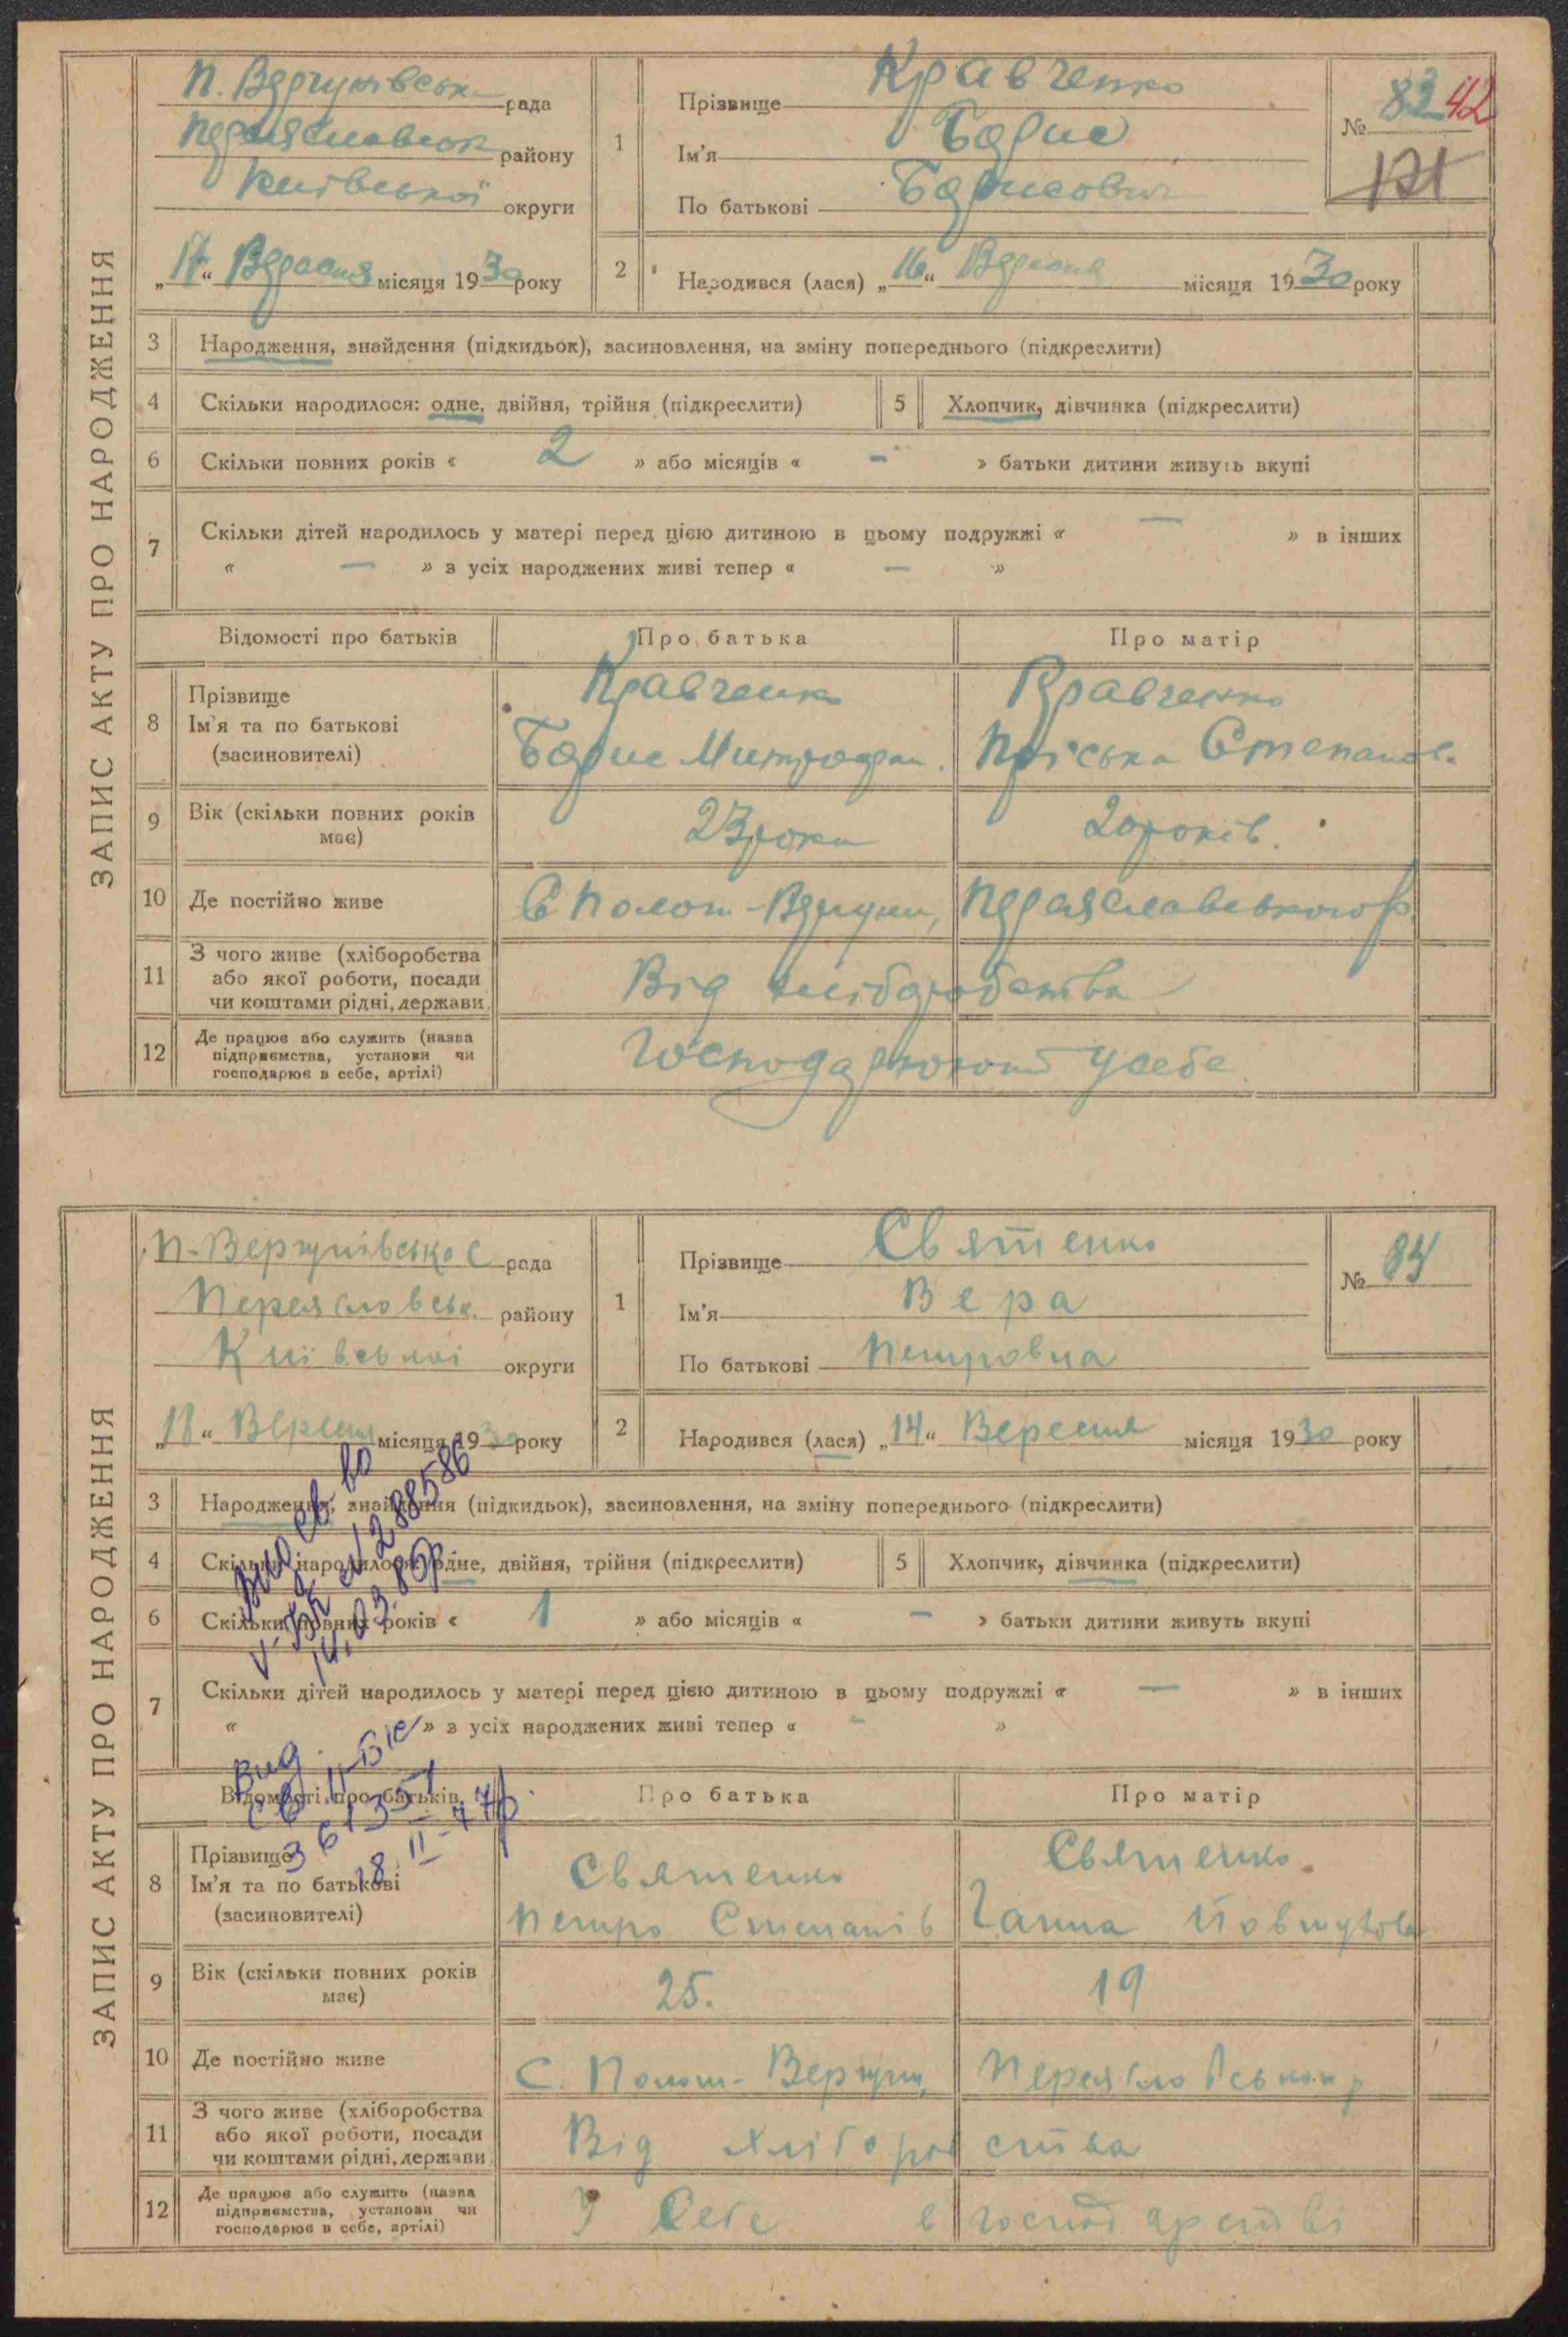 ЗАПИС АКТУ ПРО НАРОДЖЕННЯ
П. Вергунівська рада
Переяславськ району
Київської округи
„17“ Вересня місяця 1930 року
1 Прізвище Кравченко
Ім'я Борис
По батькові Борисович
№ 83 42
2 Народився (лася) „16“ Вересня місяця 1930 року
3 Народження, знайдення (підкидьок), засиновлення, на зміну попереднього (підкреслити)
4 Скільки народилося: одне, двійня, трійня (підкреслити) 5 Хлопчик, дівчинка (підкреслити)
6 Скільки повних років « 2 » або місяців « - » батьки дитини живуть вкупі
7 Скільки дітей народилось у матері перед цією дитиною в цьому подружжі « — » в інших
« — » з усіх народжених живі тепер « — »
Відомості про батьків Про батька Про матір
8 Прізвище
Ім'я та по батькові
(засиновителі)
Кравченко
Борис Митрофан.
Кравченко
Пріська Степанов.
9 Вік (скільки повних років має) 23 роки 20 років.
10 Де постійно живе С Полот-Вергуни, Переяславського р.
11 З чого живе (хліборобства
або якої роботи, посади
чи коштами рідні, держави)
Від хліборобства
12 Де працює або служить (назва
підприємства, установи чи
господарює в себе, артілі)
у себе
ЗАПИС АКТУ ПРО НАРОДЖЕННЯ
П-Вергунівська с рада
Переяславськ. району
Київської округи
„18“ Вересня місяця 1930 року
1 Прізвище Святенко
Ім'я Вера
По батькові Петровна
№ 84
2 Народився (лася) „14“ Вересня місяця 1930 року
3 Народження, знайдення (підкидьок), засиновлення, на зміну попереднього (підкреслити)
4 Скільки народилося: одне, двійня, трійня (підкреслити) 5 Хлопчик, дівчинка (підкреслити)
6 Скільки повних років « 1 » або місяців « - » батьки дитини живуть вкупі
7 Скільки дітей народилось у матері перед цією дитиною в цьому подружжі « — » в інших
« » з усіх народжених живі тепер « - »
вид св-во
V-БК № 288586
14.03.
вид.
св. II-БК
361351
18. II-77р.
Відомості про батьків Про батька Про матір
8 Прізвище
Ім'я та по батькові
(засиновителі)
Святенко
Петро Степанів
Святенко.
Ганна
9 Вік (скільки повних років має) 25. 19
10 Де постійно живе С. Полот-Вергун, Переяславськог р
11 З чого живе (хліборобства
або якої роботи, посади
чи коштами рідні, держави)
Від хліборобства
12 Де працює або служить (назва
підприємства, установи чи
господарює в себе, артілі)
У себе в господарстві